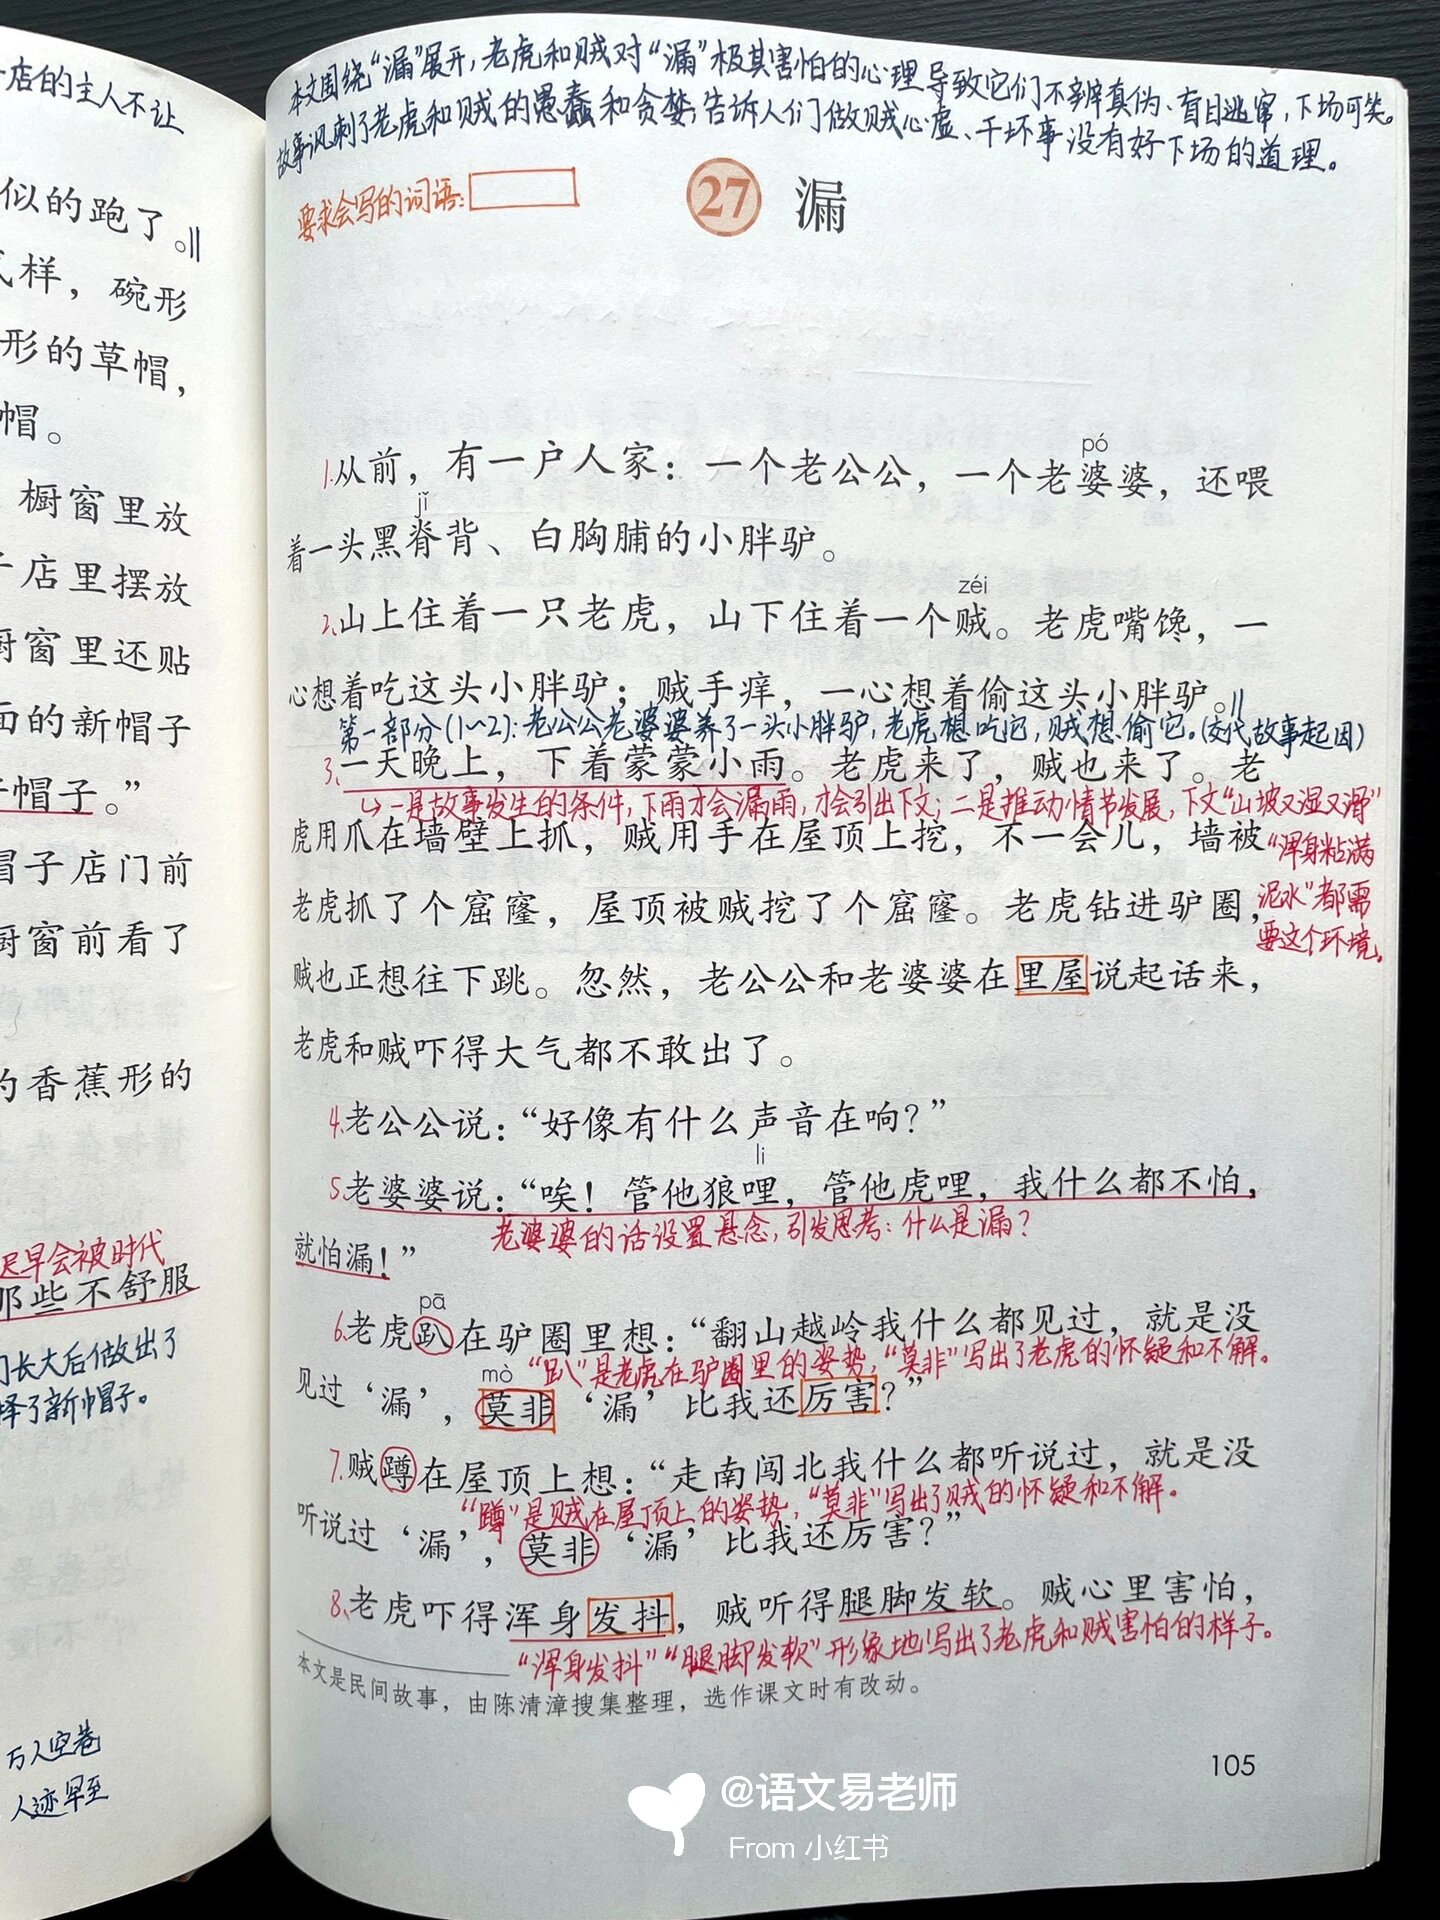 店的主人不让
似的跑了。
样，碗形
形的草帽，
帽。
橱窗里放
店里摆放
窗里还贴
面的新帽子
帽子。”
冒子店门前
窗前看了
香蕉形的
迟早会被时代
那些不舒服
们长大后做出了
择了新帽子。
万人空巷
人迹罕至
本文围绕“漏”展开，老虎和贼对“漏”极其害怕的心理导致它们不辨真伪、盲目逃窜，下场可笑。
故事讽刺了老虎和贼的愚蠢和贪婪，告诉人们做贼心虚、干坏事没有好下场的道理。
要求会写的词语：
27 漏
pó
1.从前，有一户人家：一个老公公，一个老婆婆，还喂
jǐ
着一头黑脊背、白胸脯的小胖驴。
zéi
2.山上住着一只老虎，山下住着一个贼。老虎嘴馋，一
心想着吃这头小胖驴；贼手痒，一心想着偷这头小胖驴。
第一部分(1~2)：老公公老婆婆养了一头小胖驴，老虎想吃它，贼想偷它。(交代故事起因)
3.一天晚上，下着蒙蒙小雨。老虎来了，贼也来了。老
一是故事发生的条件，下雨才会漏雨，才会引出下文；二是推动情节发展，下文“山坡又湿又滑”
虎用爪在墙壁上抓，贼用手在屋顶上挖，不一会儿，墙被
“浑身粘满
老虎抓了个窟窿，屋顶被贼挖了个窟窿。老虎钻进驴圈，
泥水”都需
要这个环境。
贼也正想往下跳。忽然，老公公和老婆婆在里屋说起话来，
老虎和贼吓得大气都不敢出了。
4.老公公说：“好像有什么声音在响？”
li
5.老婆婆说：“唉！管他狼哩，管他虎哩，我什么都不怕，
老婆婆的话设置悬念，引发思考：什么是漏？
就怕漏！”
pā
6.老虎趴在驴圈里想：“翻山越岭我什么都见过，就是没
“趴”是老虎在驴圈里的姿势，“莫非”写出了老虎的怀疑和不解。
mò
见过‘漏’，莫非‘漏’比我还厉害？”
7.贼蹲在屋顶上想：“走南闯北我什么都听说过，就是没
“蹲”是贼在屋顶上的姿势，“莫非”写出了贼的怀疑和不解。
听说过‘漏’，莫非‘漏’比我还厉害？”
8.老虎吓得浑身发抖，贼听得腿脚发软。贼心里害怕，
“浑身发抖”“腿脚发软”形象地写出了老虎和贼害怕的样子。
本文是民间故事，由陈清漳搜集整理，选作课文时有改动。
105
@语文易老师
From 小红书